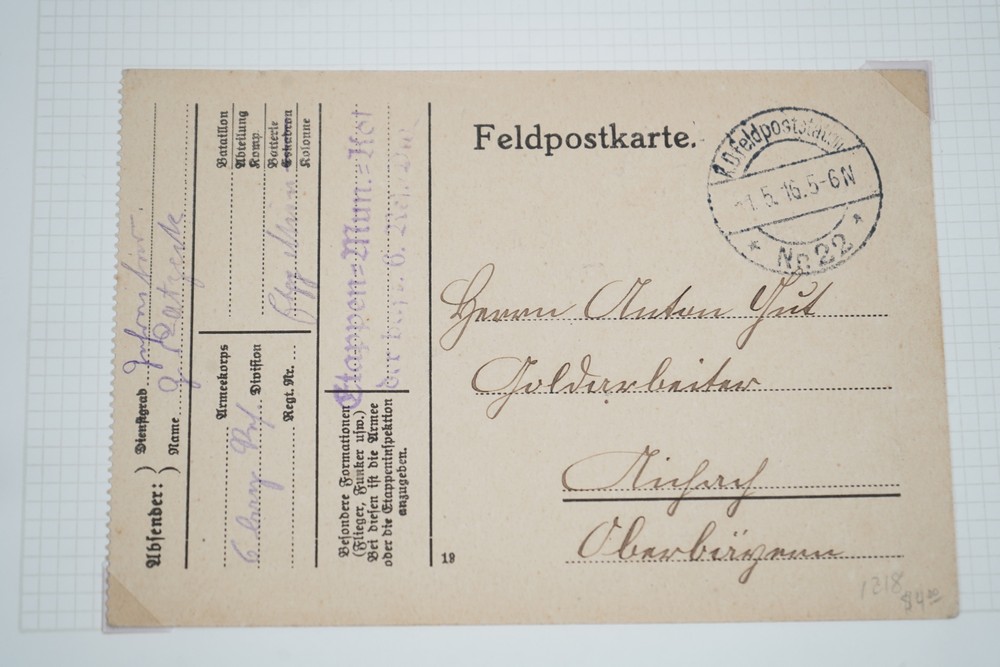 Feldpostkarte.
K.D. Feldpoststation
1.5.16.5-6N
* No 22 *
Herrn Anton Gut
Goldarbeiter
Aichach
Oberbayern
1218
$4.00
19
Absender:
Dienstgrad
Name
Armeekorps
6. bayr. Res. Division
Regt. Nr.
Bataillon
Abteilung
Komp.
Batterie
Eskadron
Kolonne
Etappen-Mun.-Kol.
der bayr. 6. Res. Div.
Besondere Formationen
(Flieger, Funker usw.)
Bei diesen ist die Armee
oder die Etappeninspektion
anzugeben.